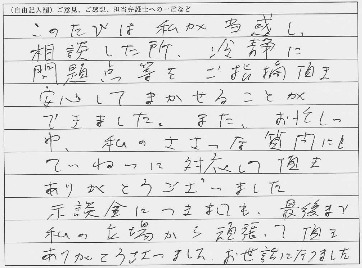 (自由記入欄)ご意見、ご感想、担当弁護士への一言など
このたびは 私が 当惑し、
相談した所、冷静に
問題点等を ご指摘頂き
安心して まかせることが
できました。また、お忙しい
中、私のささいな質問にも
ていねいに 対応して頂き
ありがとうございました
示談金につきましても、最後まで
私の立場から 頑張って頂き
ありがとうございました。お世話になりました